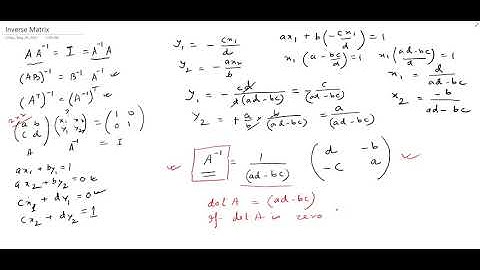 Inverse Matrix
A A⁻¹ = I = A⁻¹ A
(AB)⁻¹ = B⁻¹ A⁻¹
(Aᵀ)⁻¹ = (A⁻¹)ᵀ
2x2
(a b / c d) (x₁ x₂ / y₁ y₂) = (1 0 / 0 1)
A A⁻¹ = I
ax₁ + by₁ = 1
ax₂ + by₂ = 0
cx₁ + dy₁ = 0
cx₂ + dy₂ = 1
y₁ = - cx₁/d
y₂ = - ax₂/b
y₁ = - cd/d(ad-bc) = c/(ad-bc)
y₂ = + a/b × b/(ad-bc) = a/(ad-bc)
ax₁ + b(-cx₁/d) = 1
x₁(a - bc/d) = 1
x₁(ad-bc/d) = 1
x₁ = d/ad-bc
x₂ = -b/ad-bc
A⁻¹ = 1/(ad-bc) (d -b / -c a)
det A = (ad-bc)
If det A is zero